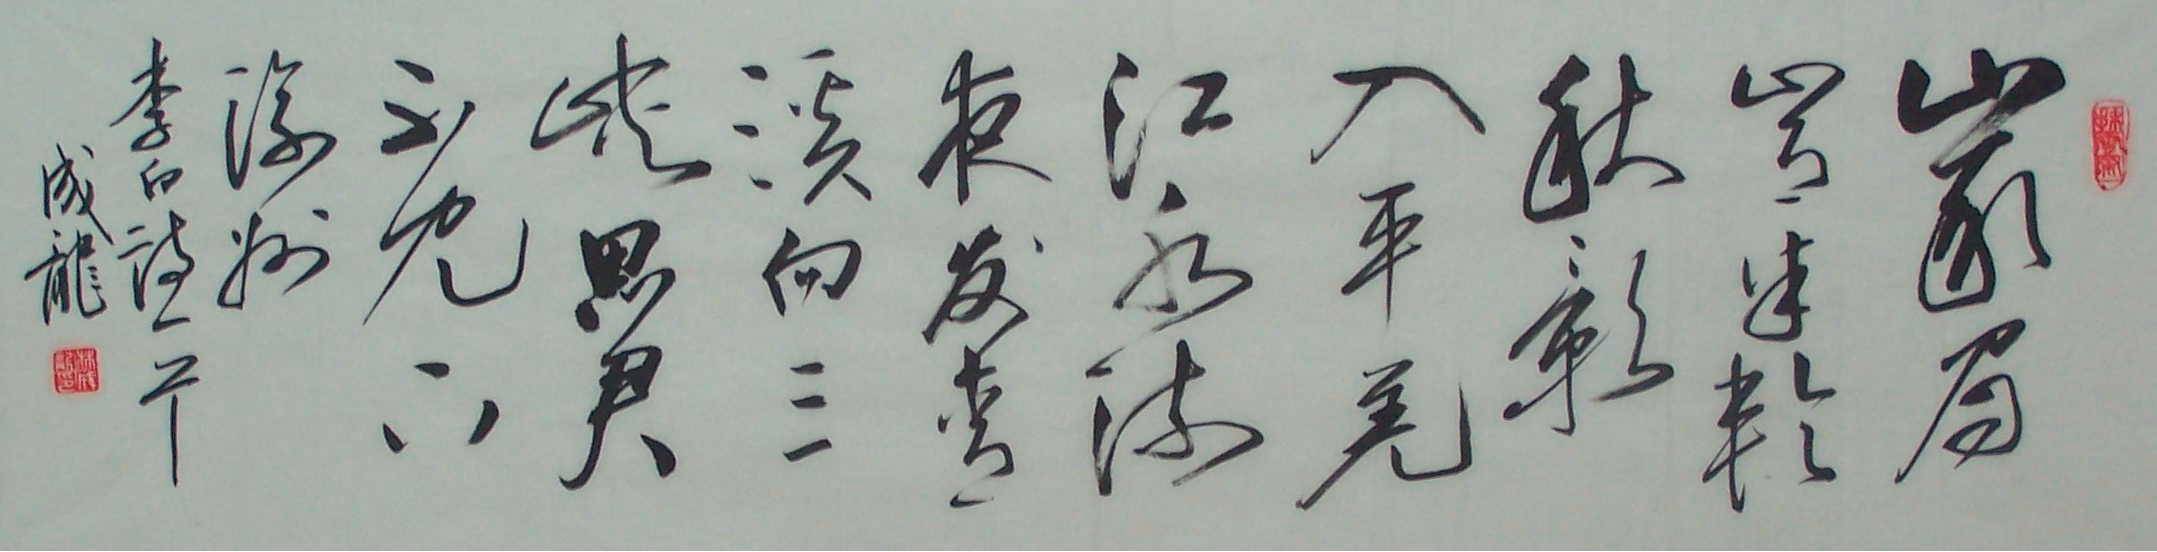 峩眉
山月半轮
秋影
入平羌
江水流
夜发青
溪向三
峡思君
不见下
渝州
李白诗一首
成龍